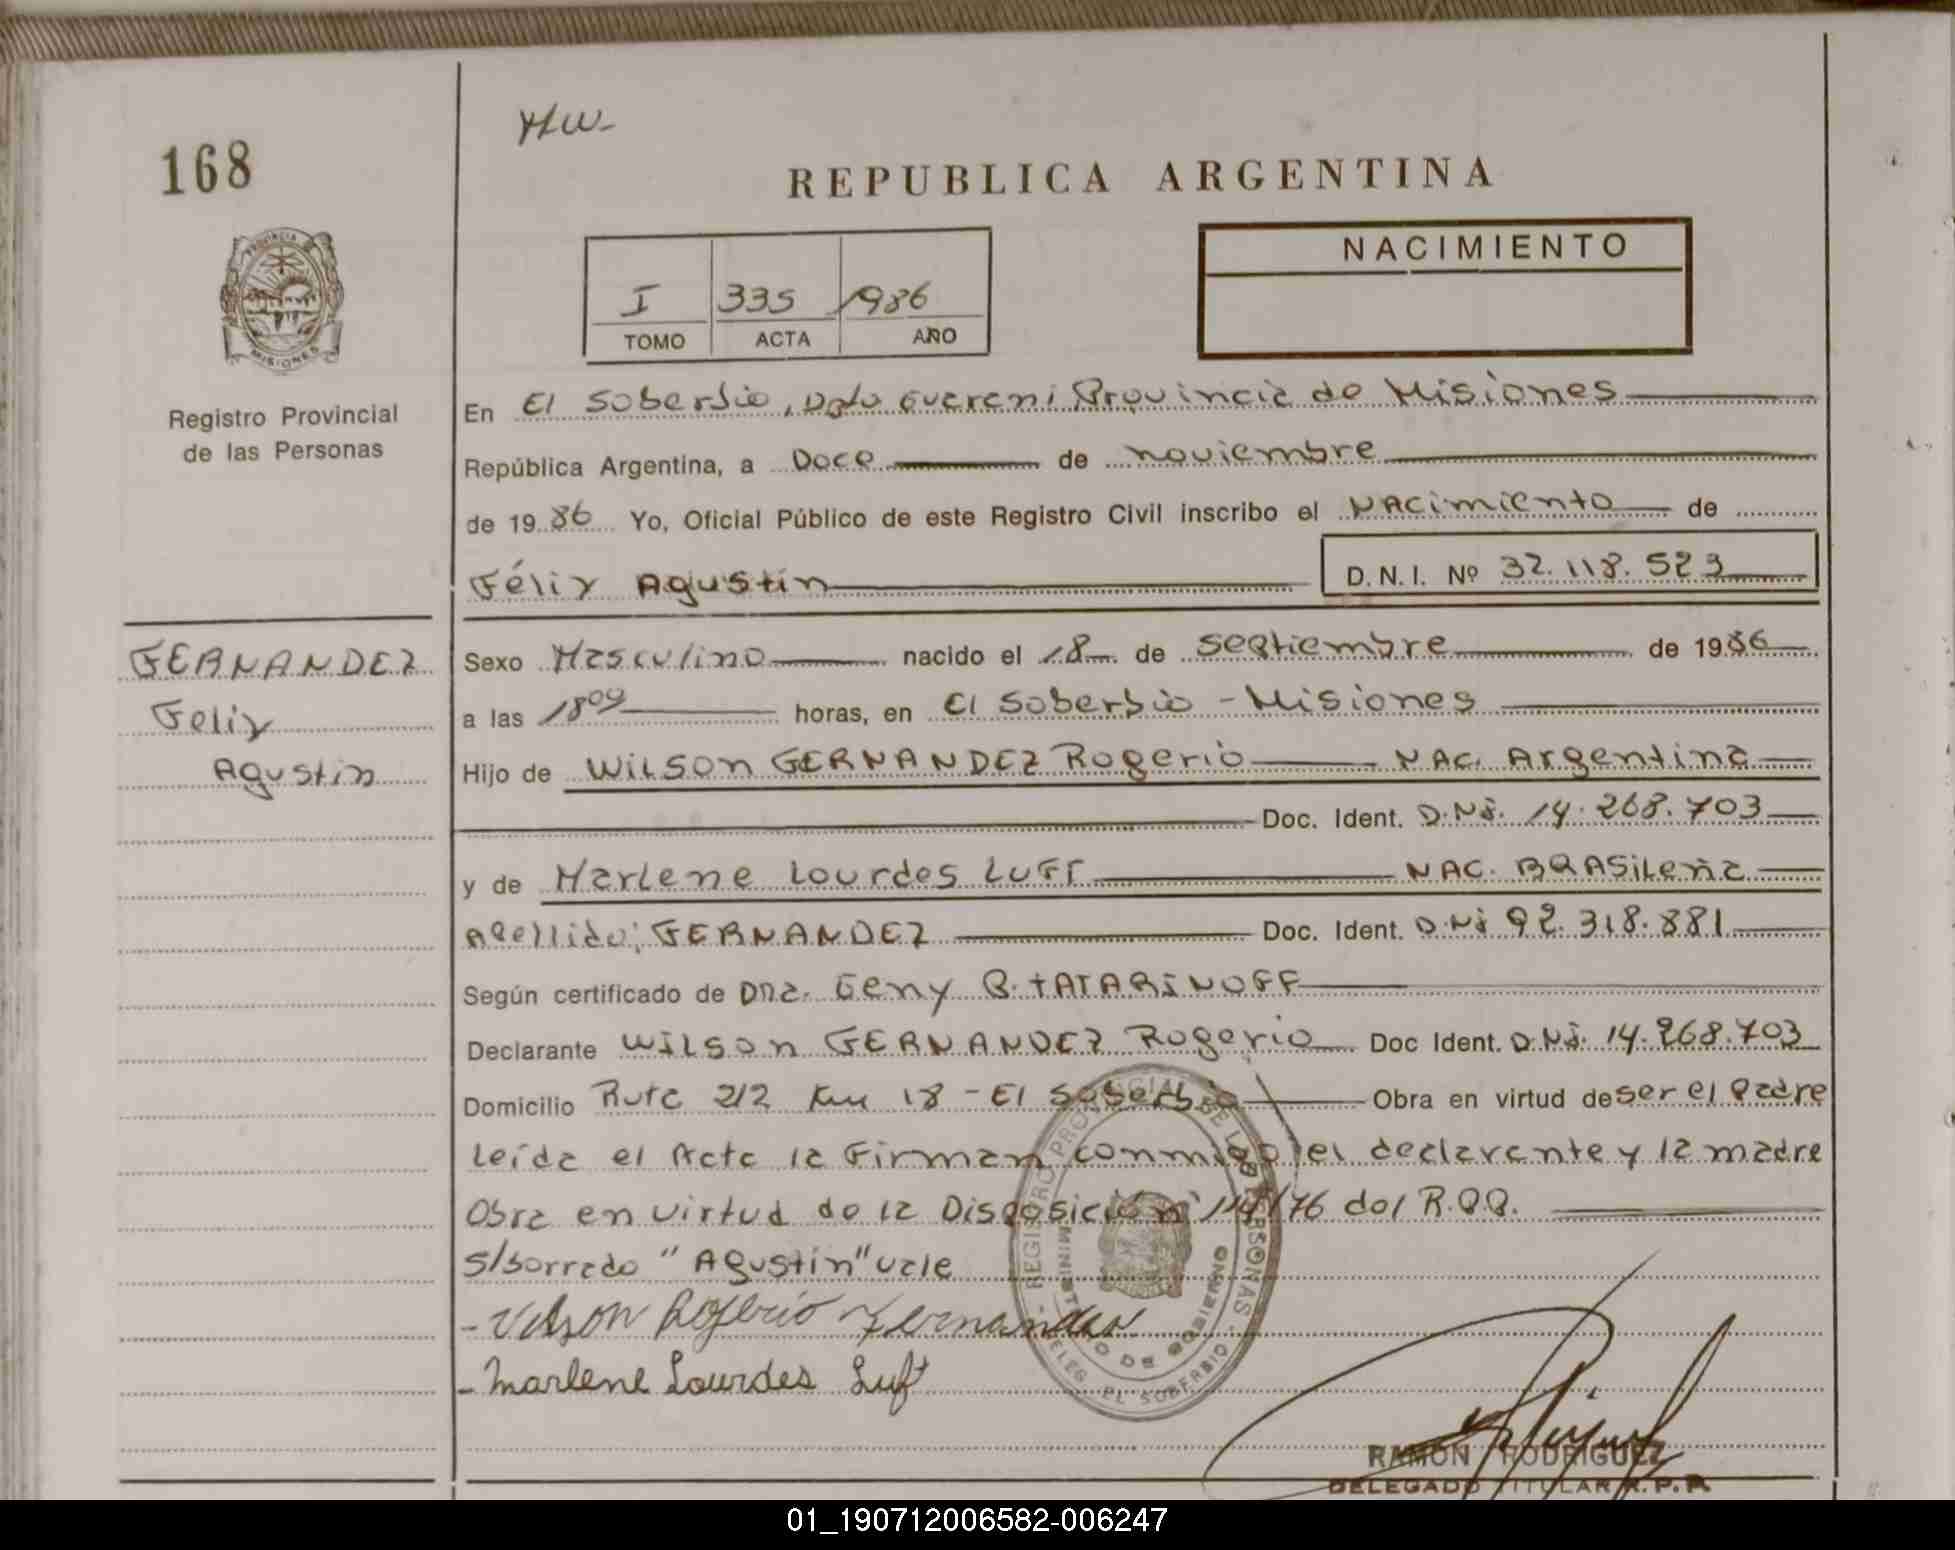 168
REPUBLICA ARGENTINA
PROVINCIA DE MISIONES
Registro Provincial
de las Personas
I 335 1986
TOMO ACTA AÑO
NACIMIENTO
En El Soberbio, Dpto Guarani Provincia de Misiones
República Argentina, a Doce de noviembre
de 1986 Yo, Oficial Público de este Registro Civil inscribo el NAcimiento de
Félix Agustín
D.N.I. Nº 32.118.523
FERNANDEZ
Felix
Agustín
Sexo Masculino nacido el 18 de septiembre de 1986
a las 18 00 horas, en El Soberbio - Misiones
Hijo de WiLson FERNANDEZ Rogerio NAC. Argentina
Doc. Ident. D.Ni. 14.268.703
y de Marlene Lourdes LUFT NAC. BRASiLeña
Apellido: FERNANDEZ Doc. Ident. D.Ni 92.318.881
Según certificado de Dra. Geny B. TATARINOFF
Declarante WiLson FERNANDEZ Rogerio Doc Ident. D.Ni. 14.268.703
Domicilio Ruta 212 Km 18 - El Soberbio Obra en virtud de ser el Padre
Leída el Acta la Firman conmigo el declarante y la madre
Obra en virtud de la Disposición 114/76 del R.P.P.
S/borrado "Agustín" vale
- Vilson Rogério Fernandes
- Marlene Lourdes Luft
REGISTRO PROVINCIAL DE LAS PERSONAS
MINISTERIO DE GOBIERNO
DELEG. EL SOBERBIO
RAMON RODRIGUEZ
DELEGADO TITULAR R.P.P.
01_190712006582-006247